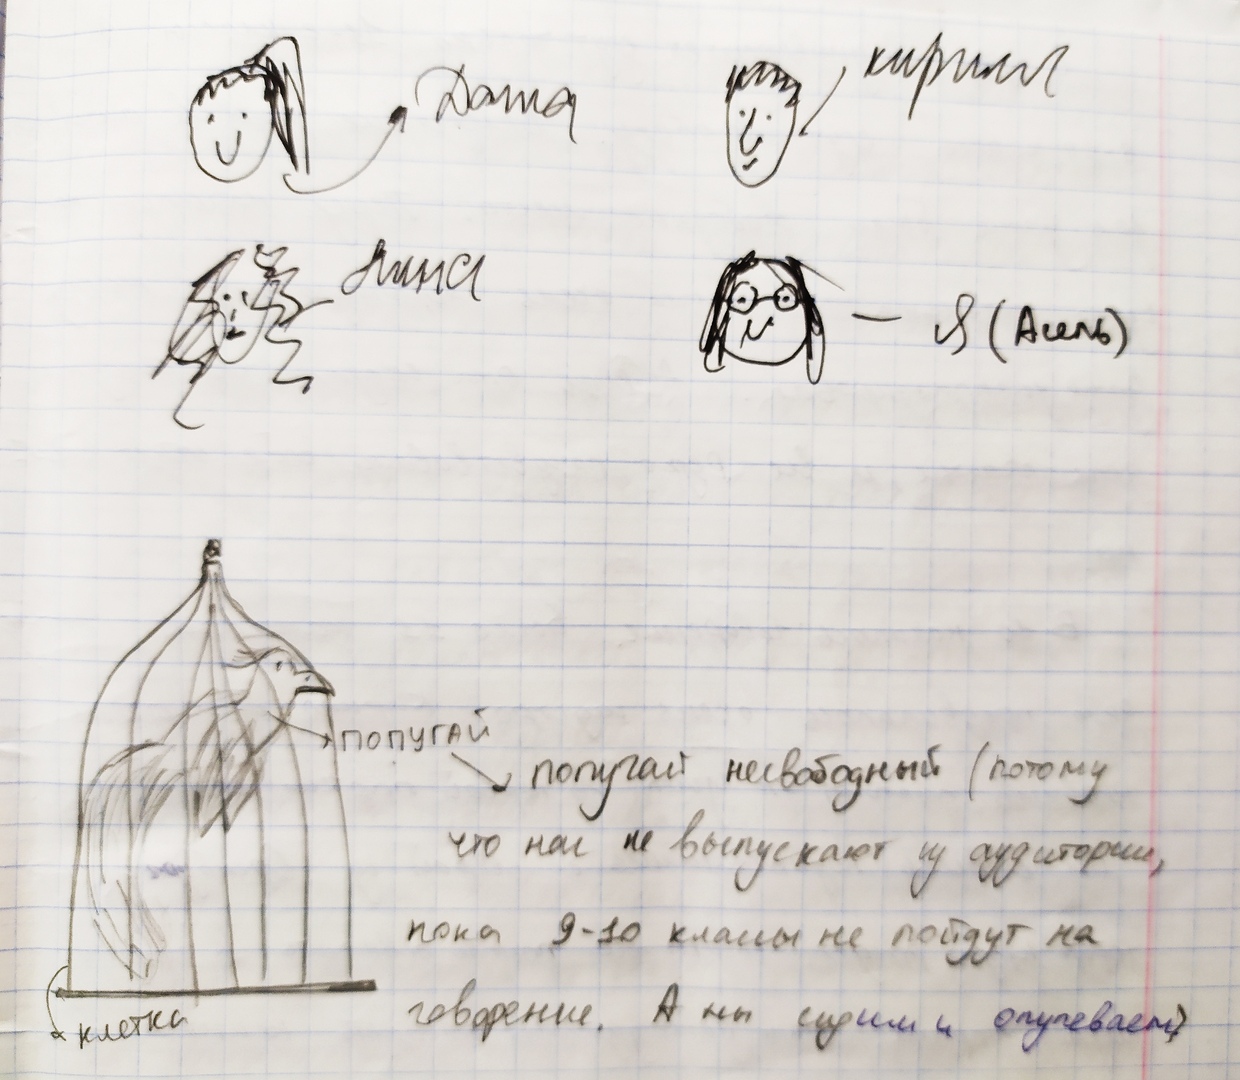 Даша
кирилл
Нина
Я (Асель)
попугай
попугай несвободный (потому
что нас не выпускают из аудитории,
пока 9-10 классы не пойдут на
говорение. А мы сидим и опупеваем)
клетка